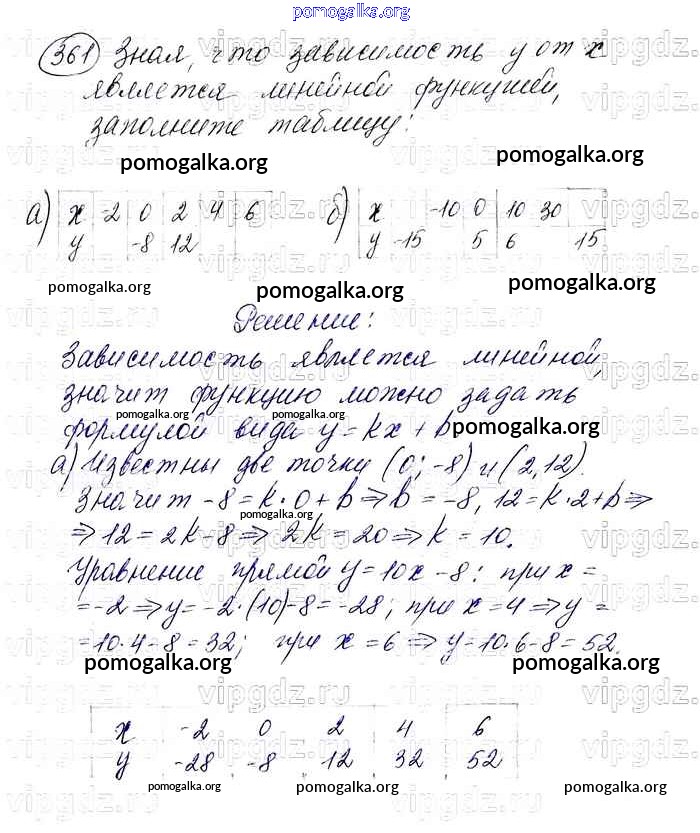 pomogalka.org
361 Зная, что зависимость y от x
является линейной функцией,
заполните таблицу:
pomogalka.org pomogalka.org
а) x -2 0 2 4 6
y -8 12
б) x -10 0 10 30
y -15 5 6 15
pomogalka.org pomogalka.org pomogalka.org
Решение:
Зависимость является линейной,
значит функцию можно задать
pomogalka.org pomogalka.org
формулой вида y = kx + b.
pomogalka.org
а) Известны две точки (0; -8) и (2, 12).
Значит -8 = k·0 + b ⇒ b = -8, 12 = k·2 + b ⇒
pomogalka.org
⇒ 12 = 2k - 8 ⇒ 2k = 20 ⇒ k = 10.
Уравнение прямой y = 10x - 8: при x =
= -2 ⇒ y = -2·(10) - 8 = -28; при x = 4 ⇒ y =
= 10·4 - 8 = 32; при x = 6 ⇒ y = 10·6 - 8 = 52.
pomogalka.org pomogalka.org pomogalka.org
x -2 0 2 4 6
y -28 -8 12 32 52
pomogalka.org pomogalka.org pomogalka.org
vipgdz.ru